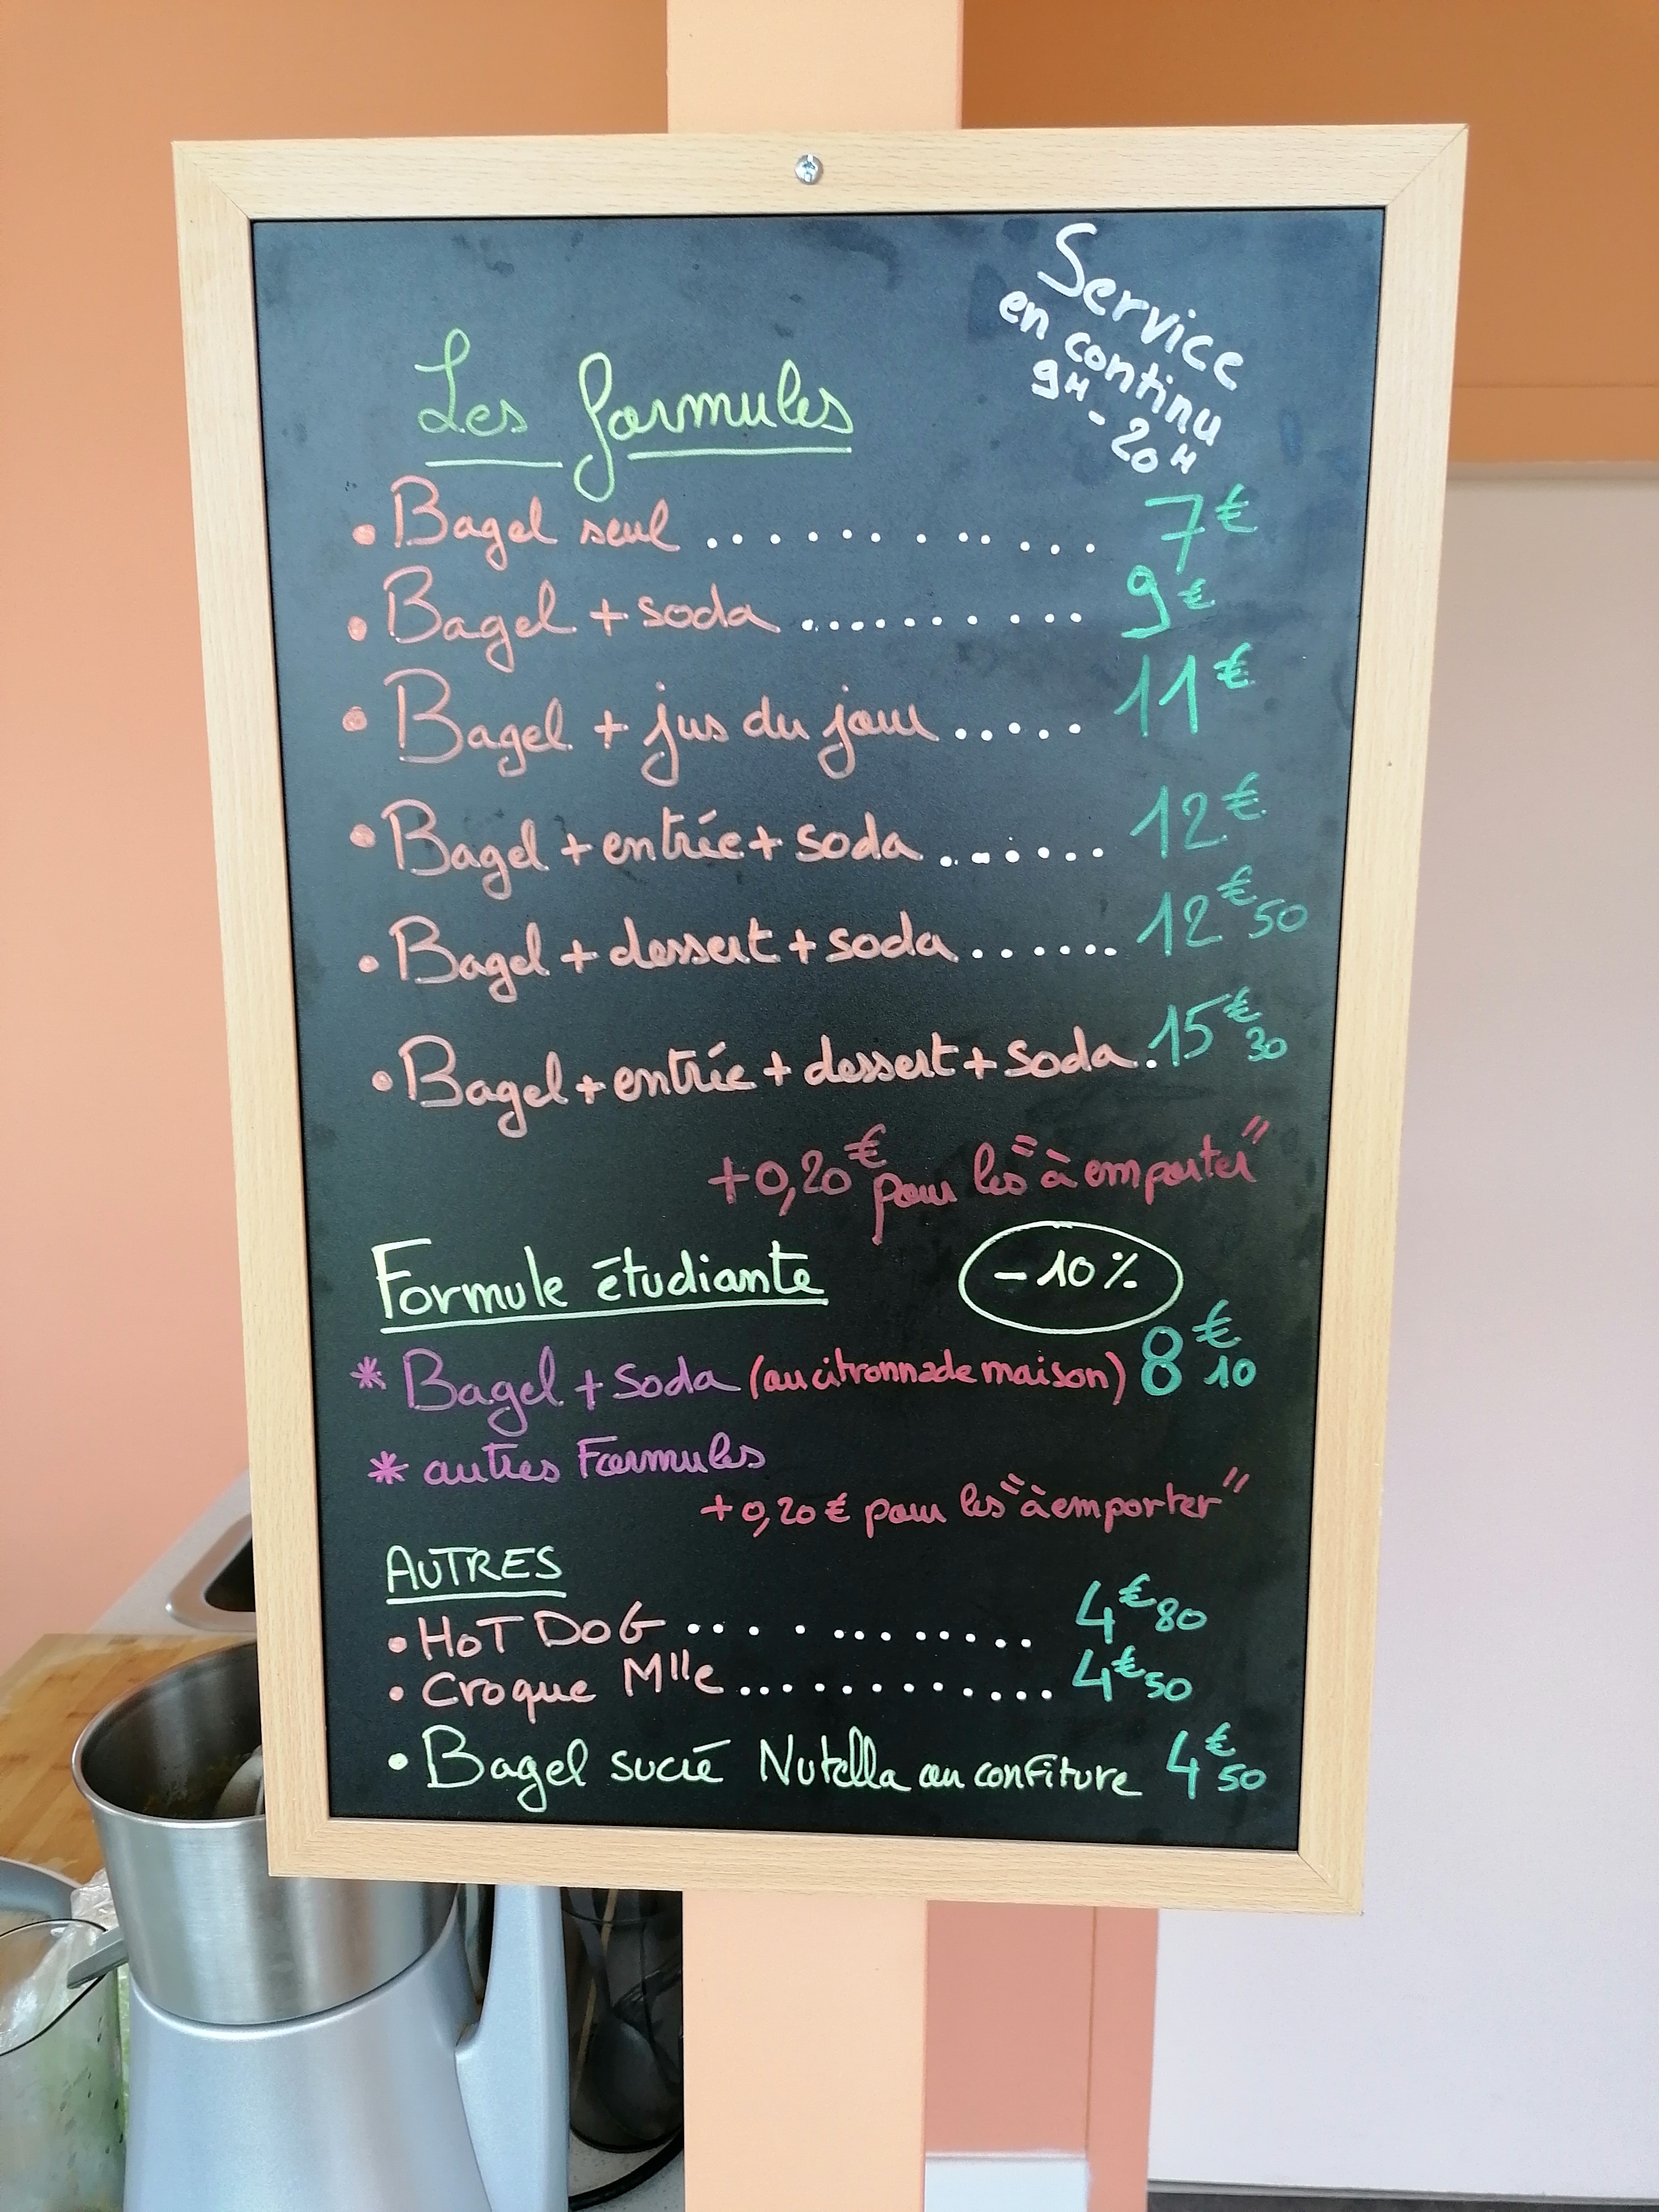 Service
en continu
9H-20H
Les formules
• Bagel seul .............. 7€
• Bagel + soda .......... 9€
• Bagel + jus du jour ..... 11€
• Bagel + entrée + soda ...... 12€
• Bagel + dessert + soda ...... 12€50
• Bagel + entrée + dessert + soda . 15€30
+0,20€ pour les "à emporter"
Formule étudiante -10%
* Bagel + Soda (ou citronnade maison) 8€10
* autres Formules
+0,20€ pour les "à emporter"
AUTRES
• HOT DOG ............ 4€80
• Croque Mlle ............ 4€50
• Bagel sucré Nutella ou confiture 4€50